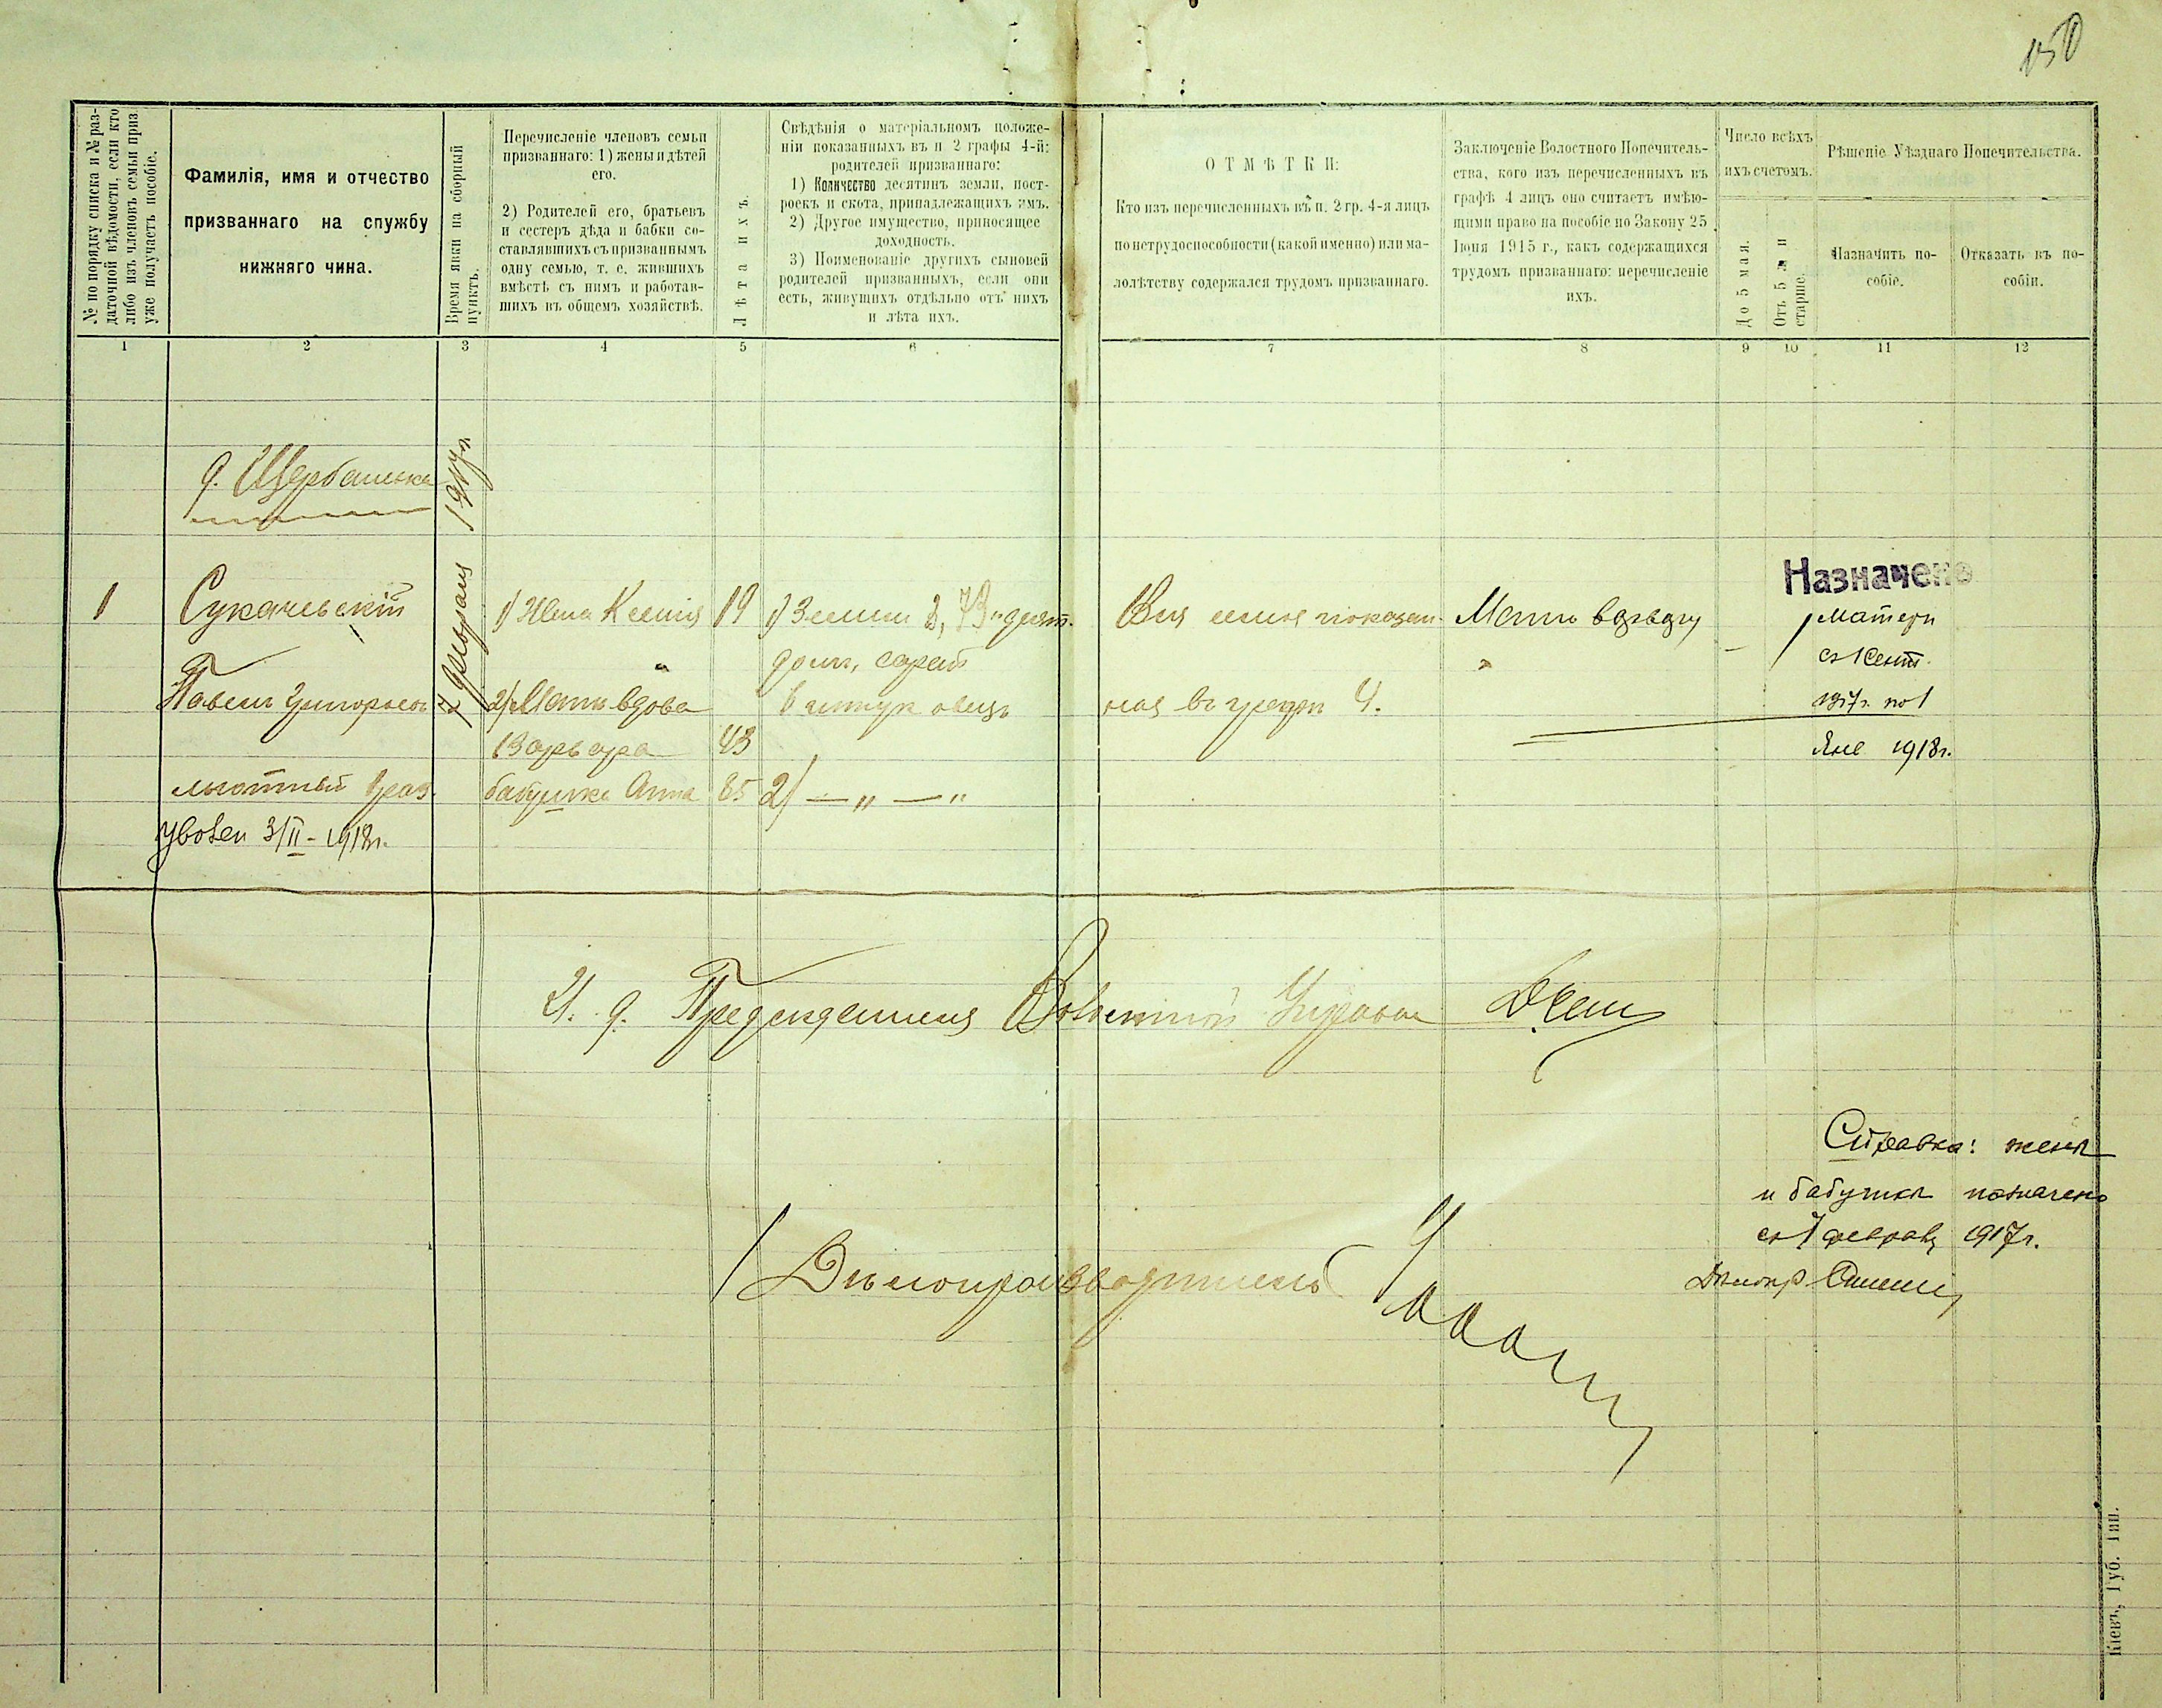 150
№ по порядку списка и № раз-
даточной вѣдомости, если кто
либо изъ членовъ семьи приз.
уже получаетъ пособіе.
Фамилія, имя и отчество
призваннаго на службу
нижняго чина.
Время явки на сборный
пунктъ.
Перечисленіе членовъ семьи
призваннаго: 1) жены и дѣтей
его.
2) Родителей его, братьевъ
и сестеръ дѣда и бабки со-
ставлявшихъ съ призваннымъ
одну семью, т. е. жившихъ
вмѣстѣ съ нимъ и работав-
шихъ въ общемъ хозяйствѣ.
Лѣта ихъ.
Свѣдѣнія о матеріальномъ положе-
ніи показанныхъ въ п 2 графы 4-й:
родителей призваннаго:
1) Количество десятинъ земли, пост-
роекъ и скота, принадлежащихъ имъ.
2) Другое имущество, приносящее
доходность.
3) Поименованіе другихъ сыновей
родителей призванныхъ, если они
есть, живущихъ отдѣльно отъ нихъ
и лѣта ихъ.
ОТМѢТКИ:
Кто изъ перечисленныхъ въ п. 2 гр. 4-я лицъ
по нетрудоспособности (какой именно) или ма-
лолѣтству содержался трудомъ призваннаго.
Заключеніе Волостного Попечитель-
ства, кого изъ перечисленныхъ въ
графѣ 4 лицъ оно считаетъ имѣю-
щими право на пособіе по Закону 25
Іюня 1915 г., какъ содержащихся
трудомъ призваннаго: перечисленіе
ихъ.
Число всѣхъ
ихъ счетомъ.
До 5 мая.
Отъ 5 л и
старше.
Рѣшеніе Уѣзднаго Попечительства.
Назначить по-
собіе.
Отказать въ по-
собіи.
1 2 3 4 5 6 7 8 9 10 11 12
д. Щербашенка
7 февраля 1917 г.
1 Сукачевскій 1) Жена Ксенія 19 1) Земли 2,73 десят. Вся семья показан- Мать вдову
Назначено
1 матери
дом, сарай
съ 1 Сент.
Павелъ Григорьевъ 2) Мать вдова 6 штук овецъ ная въ графѣ 4.
1917 г. по 1
Варвара 43
Янв 1918 г.
льготный 1 раз. бабушка Анна 85 2) — " — "
уволен 3/II - 1918 г.
И. д. Предсѣдателя Волостной Управы
Справка: женѣ
и бабушкѣ назначено
съ 7 февраля 1917 г.
Дѣлопр.
Дѣлопроизводитель
Кіевъ, Губ. Тип.